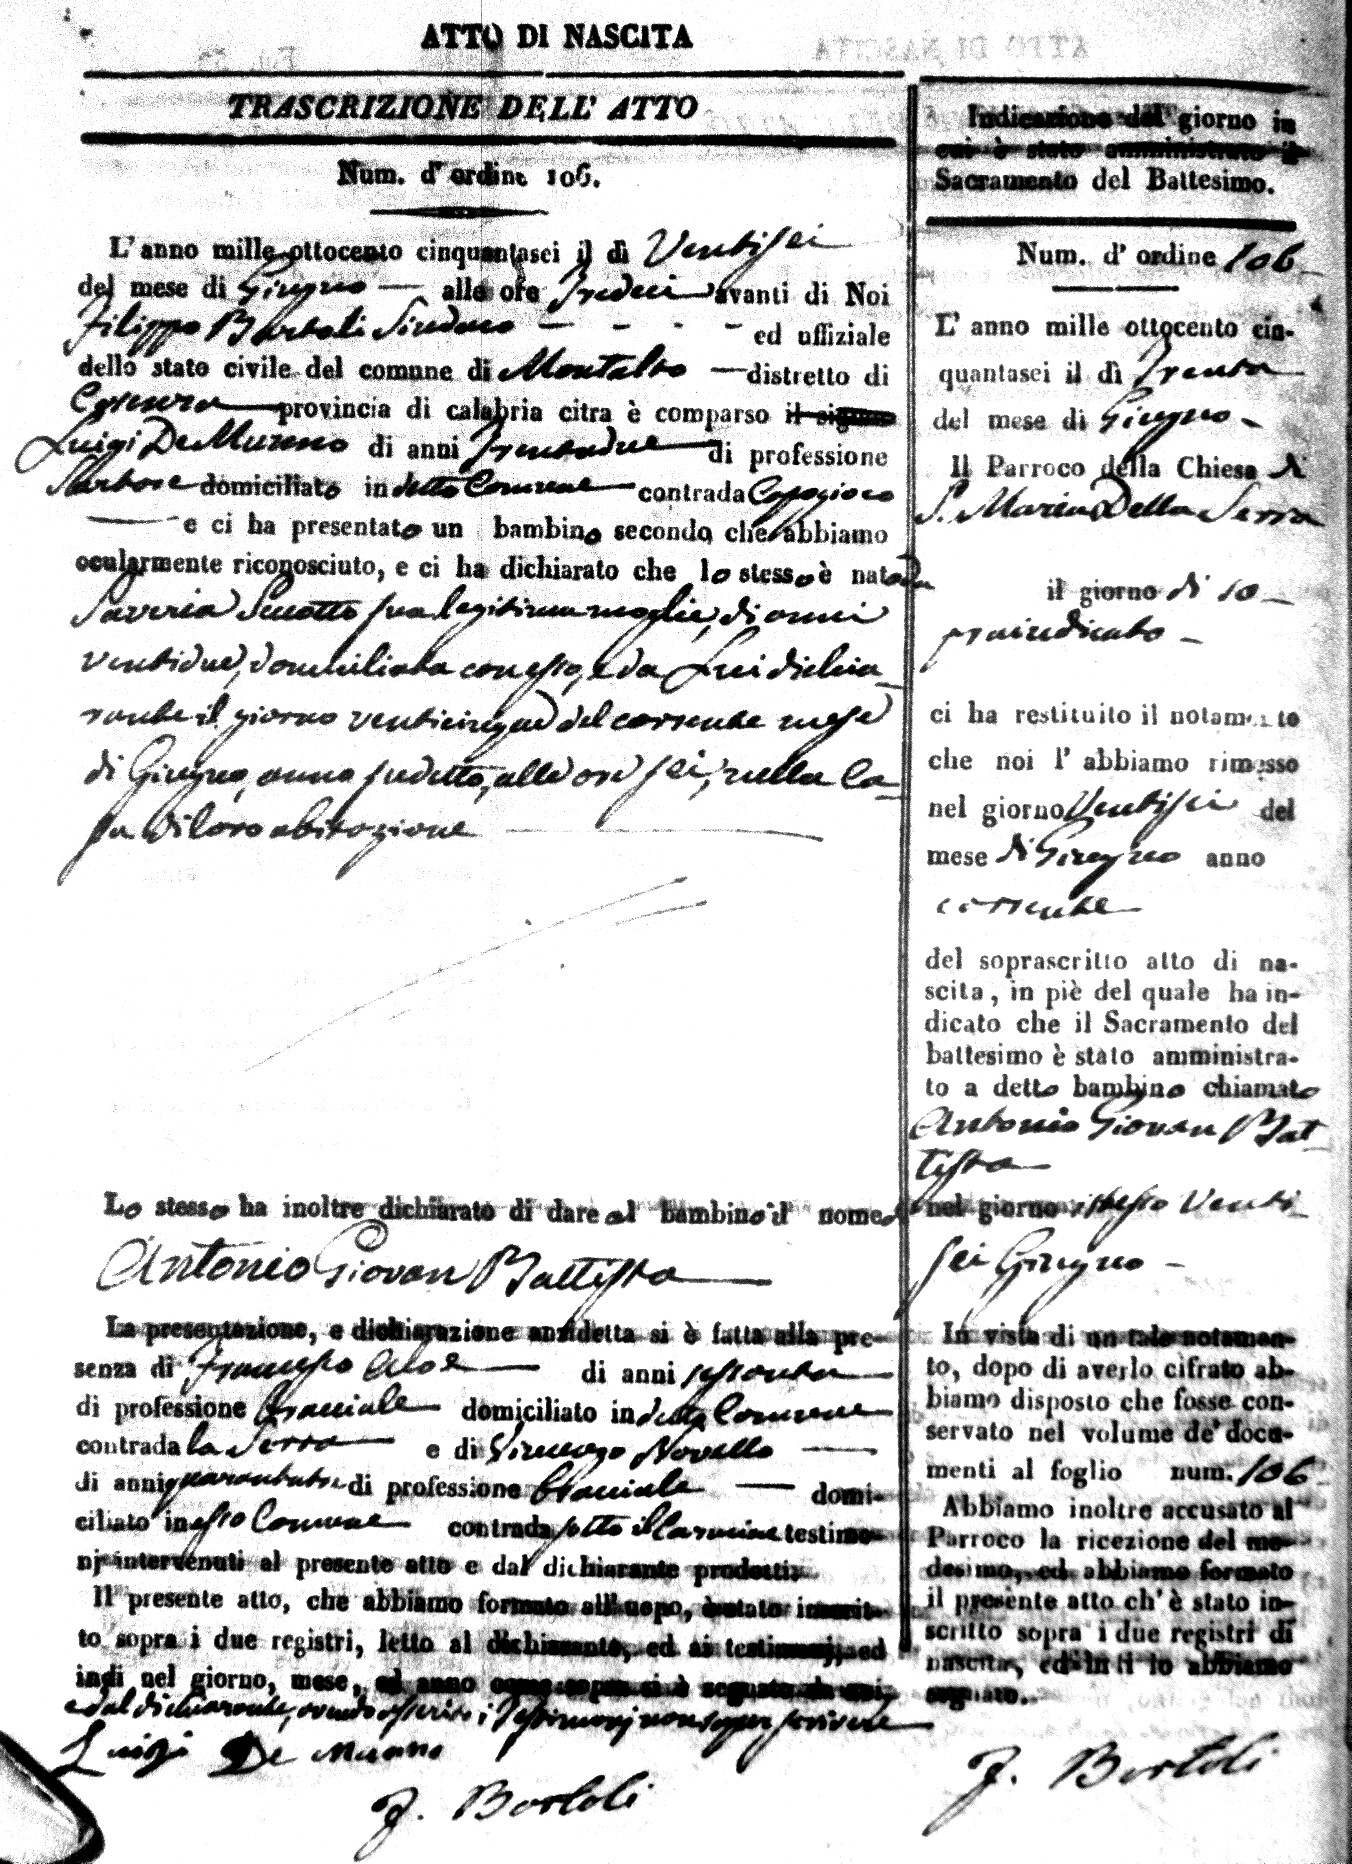 ATTO DI NASCITA
TRASCRIZIONE DELL' ATTO
Num. d' ordine 106.
L' anno mille ottocento cinquantasei il dì Ventisei
del mese di Giugno — alle ore Tredici avanti di Noi
Filippo Bartoli Sindaco — - - - ed uffiziale
dello stato civile del comune di Montalto — distretto di
Cosenza provincia di calabria citra è comparso il signor
Luigi De Munno di anni Trentadue di professione
Sartore domiciliato in detto Comune contrada
— e ci ha presentato un bambino secondo che abbiamo
ocularmente riconosciuto, e ci ha dichiarato che lo stesso è nato da
Saveria sua legitima moglie, di anni
ventidue, domiciliata con esso, e da Lui dichia-
rante il giorno venticinque del corrente mese
di Giugno, anno sudetto, alle ore sei, nella Ca-
sa di loro abitazione
Lo stesso ha inoltre dichiarato di dare al bambino il nome di
Antonio Giovan Battista
La presentazione, e dichiarazione anzidetta si è fatta alla pre-
senza di Francesco Aloe di anni sessanta
di professione Bracciale domiciliato in detto Comune
contrada la Serra e di Vincenzo Novello —
di anni quarantatre di professione bracciale — domi-
ciliato in esso Comune contrada sotto il Carmine testimo-
nj intervenuti al presente atto e dal dichiarante prodotti.
Il presente atto, che abbiamo formato all' uopo, è stato inscrit-
to sopra i due registri, letto al dichiarante, ed ai testimonj, ed
indi nel giorno, mese, ed anno come sopra si è segnato da noi,
e dal dichiarante, avendo asserito i Testimonj non saper scrivere
Luigi De Munno
F. Bartoli
Indicazione del giorno in
cui è stato amministrato il
Sacramento del Battesimo.
Num. d' ordine 106
L' anno mille ottocento cin-
quantasei il dì Trenta
del mese di Giugno -
Il Parroco della Chiesa di
S. Maria Della Serra
il giorno di so-
praindicato -
ci ha restituito il notamento
che noi l' abbiamo rimesso
nel giorno Ventisei del
mese di Giugno anno
corrente
del soprascritto atto di na-
scita, in piè del quale ha in-
dicato che il Sacramento del
battesimo è stato amministra-
to a detto bambino chiamato
Antonio Giovan Bat-
tista
nel giorno istesso Venti-
sei Giugno -
In vista di un tale notamen-
to, dopo di averlo cifrato ab-
biamo disposto che fosse con-
servato nel volume de' docu-
menti al foglio num. 106
Abbiamo inoltre accusato al
Parroco la ricezione del me-
desimo, ed abbiamo formato
il presente atto ch' è stato in-
scritto sopra i due registri di
nascita, ed indi lo abbiamo
segnato.
F. Bartoli